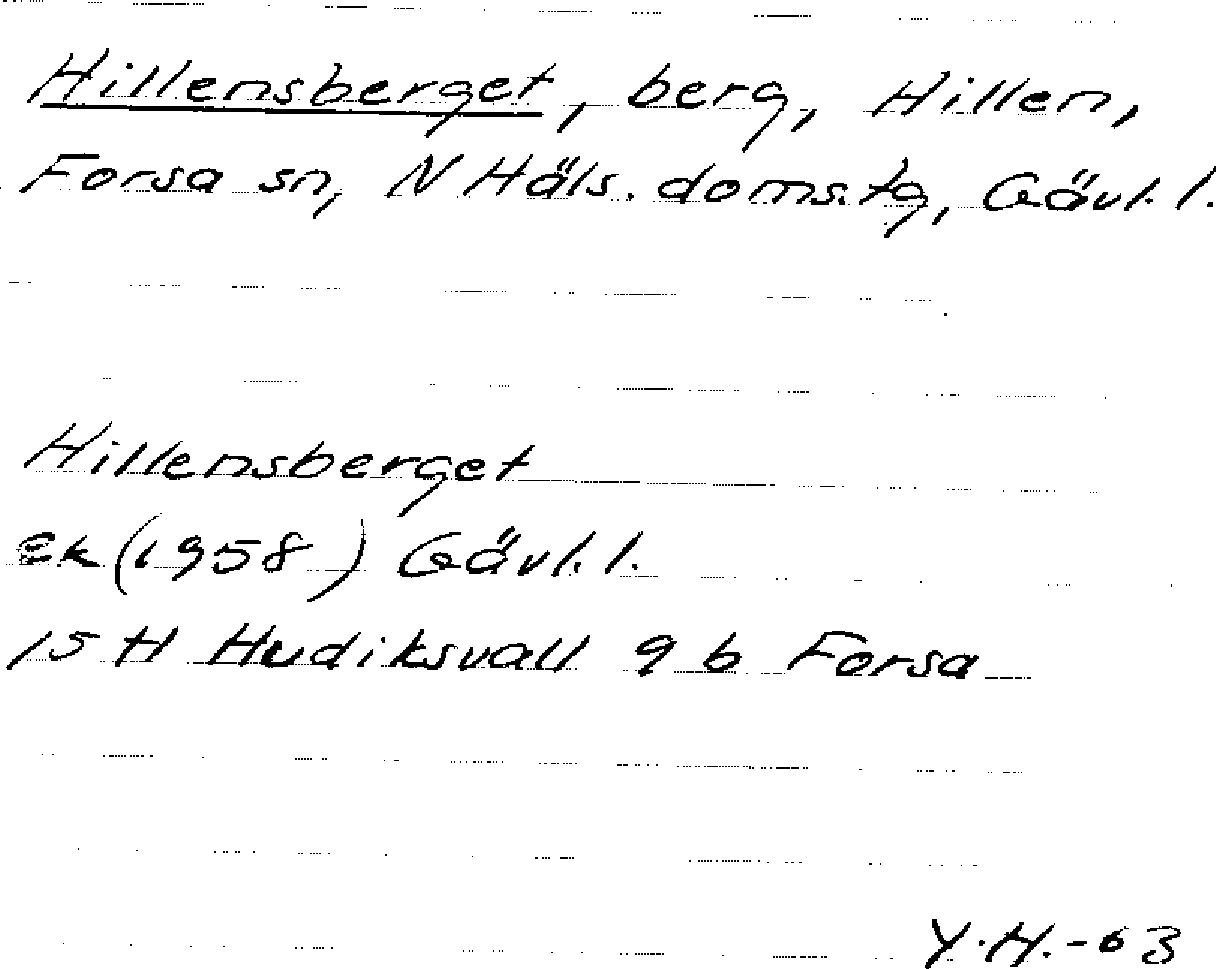 Hillensberget, berg, Hillen,
Forsa sn, N Häls. doms.tg, Gävl. l.
Hillensberget
Ek (1958) Gävl. l.
15 H Hudiksvall 9 b Forsa
Y.H.-63